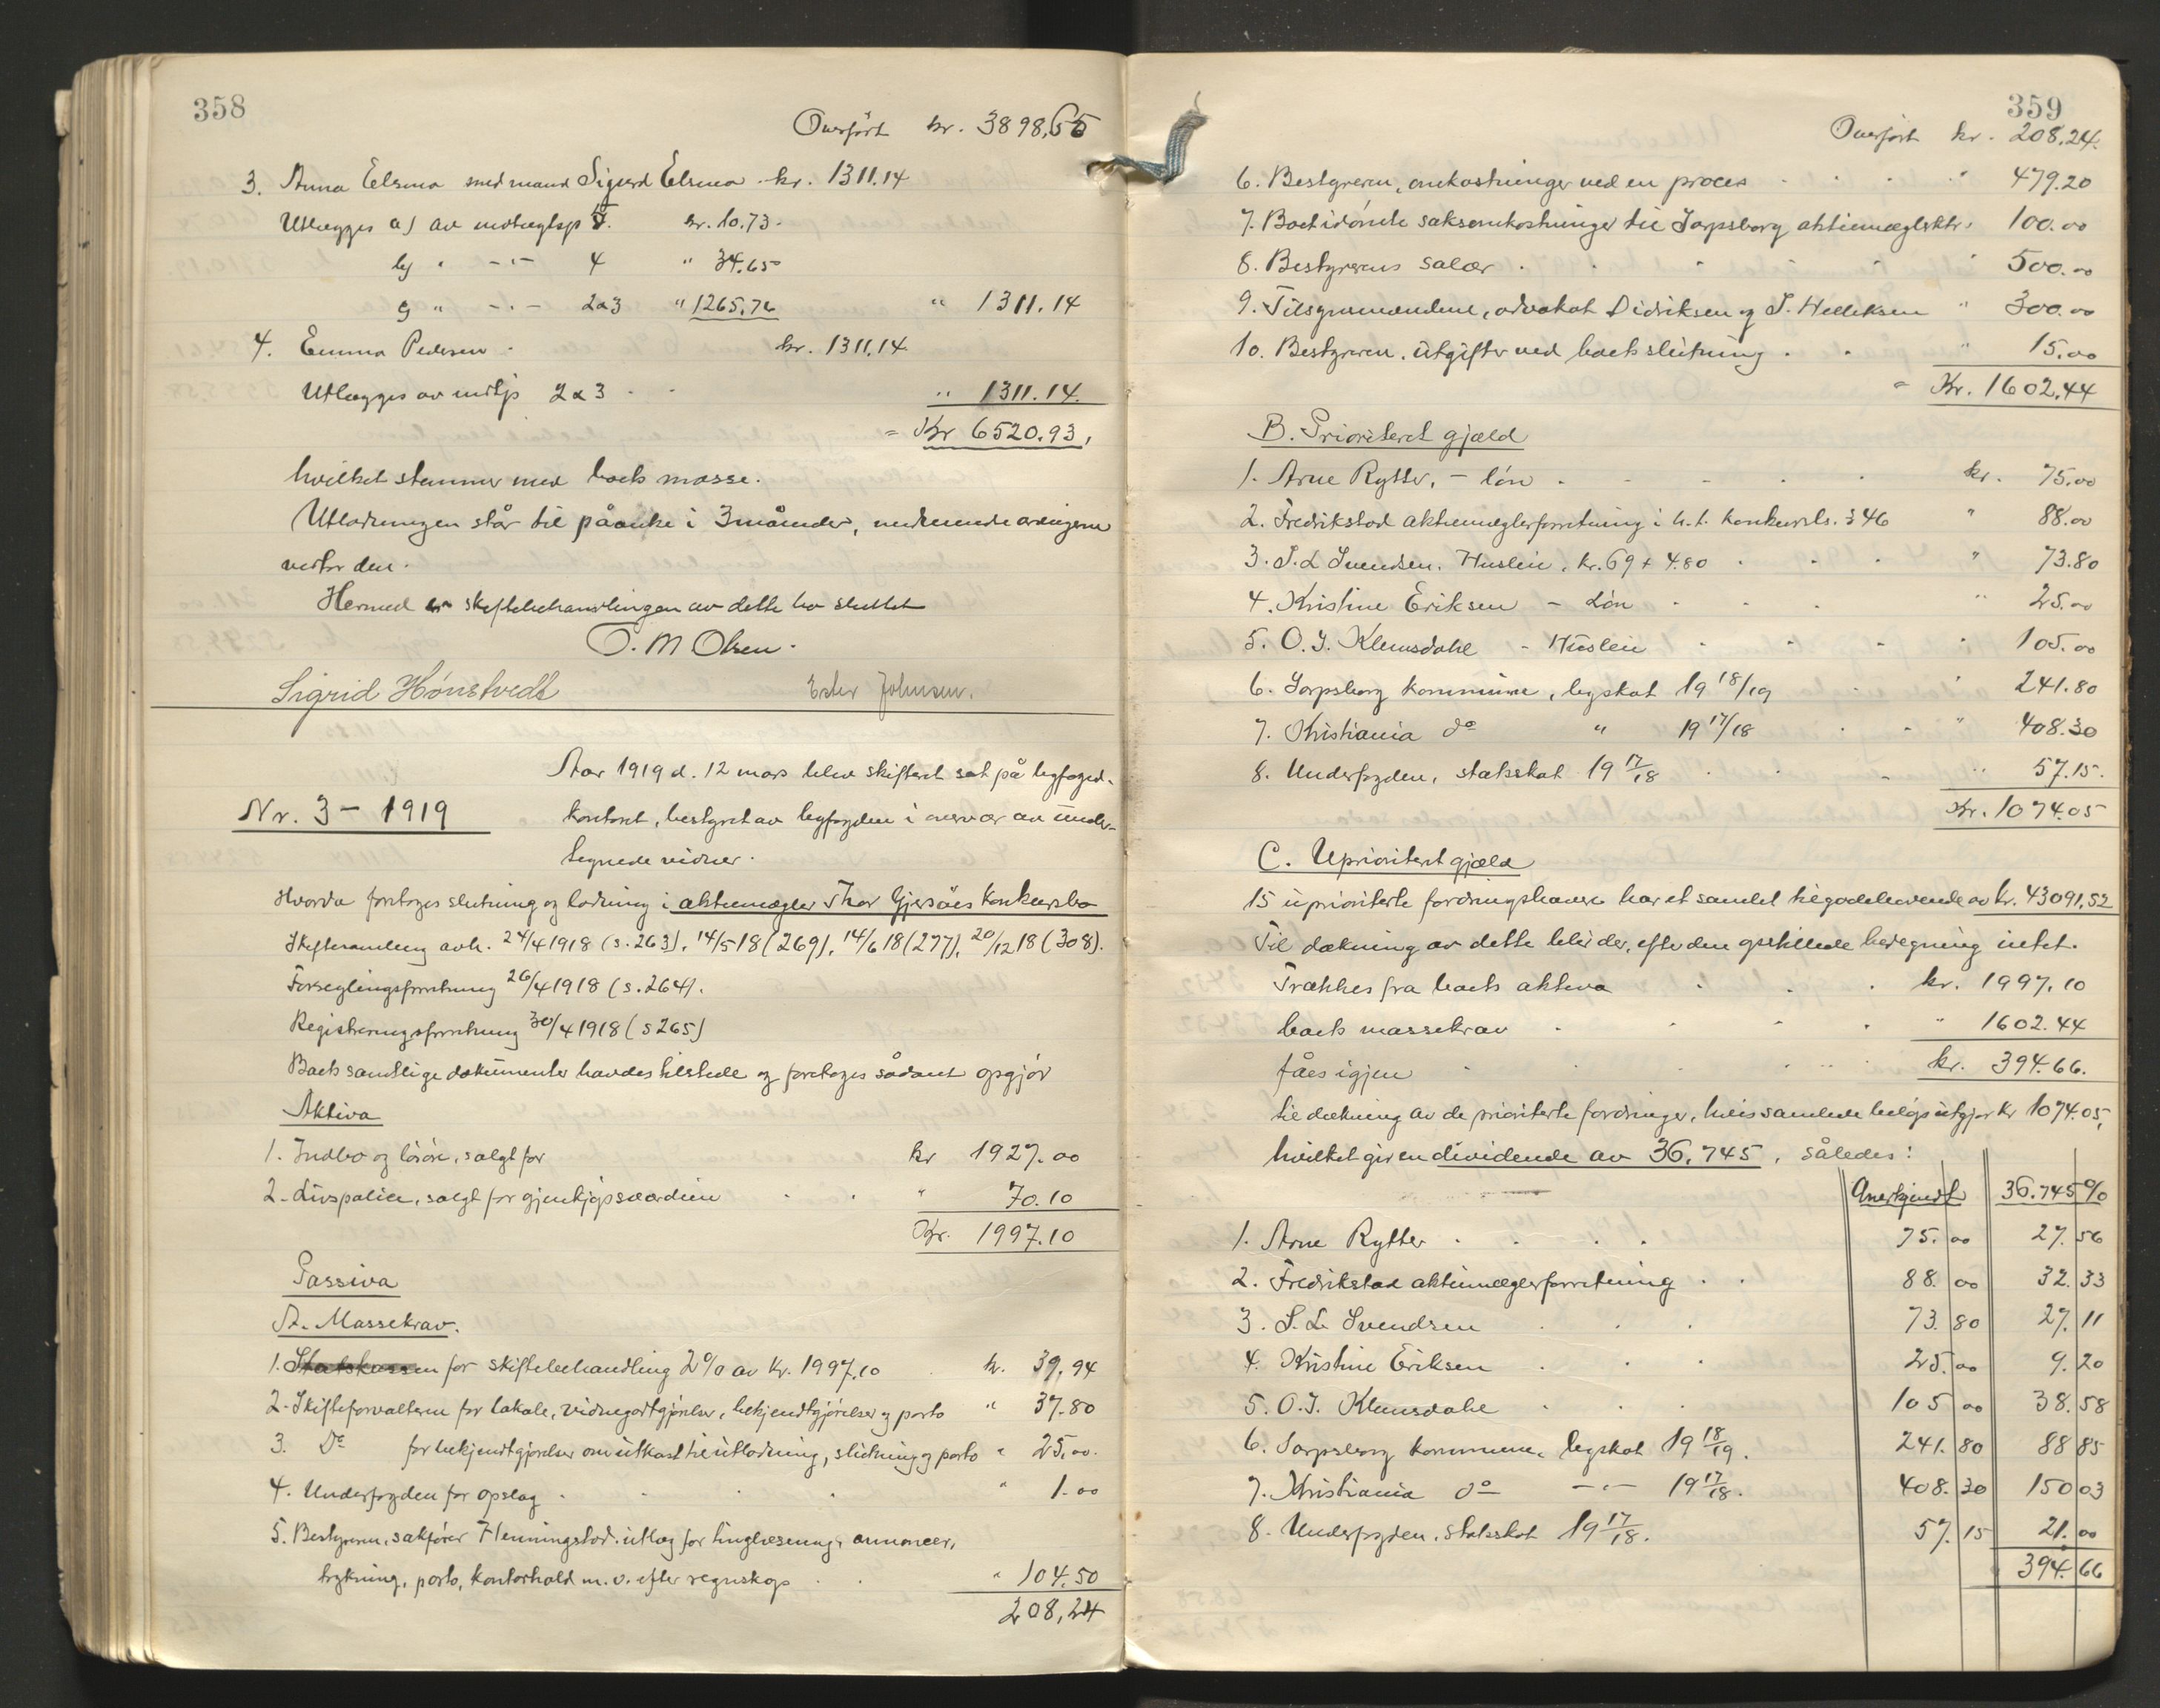 358
Overført kr. 3898,65
3. Anna Elsma med mand Sigurd Elsma kr. 1311.14
Utlægges a) av indtægtsp 5. kr. 10.73.
b) " -"- 4 " 34.65
c) " -"- 2&3 " 1265.76 " 1311.14
4. Emma Pedersen kr. 1311.14
Utlægges av indtp 2&3 " 1311.14.
= Kr 6520.93,
hvilket stemmer med boets masse.
Utlodningen står til påanke i 3 måneder,
vedtar den.
Hermed er skiftebehandlingen av dette bo sluttet
O. M Olsen.
Sigrid Hønstvedt Ester Johnsen.
Nr. 3 - 1919
Aar 1919 d. 12 mars blev skifteret sat på byfoged-
kontoret, bestyret av byfogden i nærvær av under-
tegnede vidner.
Hvorda foretoges slutning og lodning i aktiemægler Thor Gjersøes konkursbo
Skiftesamling avh. 24/4 1918 (s. 263), 14/5 18 (269), 14/6 18 (277), 20/12 18 (308).
Forseglingsforretning 26/4 1918 (s. 264).
Registreringsforretning 30/4 1918 (s 265)
Boets samtlige dokumenter havdes tilstede og foretoges sådant opgjør
Aktiva
1. Indbo og løsøre, solgt for kr 1927.00
2. Livspolice, solgt for gjenkjøpsværdien " 70.10
Kr. 1997.10
Passiva
A. Massekrav.
1. Statskassen for skiftebehandling 2% av Kr. 1997.10 kr. 39.94
2. Skifteforvalteren for lokale, vidnegodtgjørelse, bekjendtgjørelser og porto " 37.80
3. Do for bekjendtgjørelser om utkast til utlodning, slutning og porto " 25.00.
4. Underfogden for opslag " 1.00
5. Bestyreren, sakfører Henningstad. utlæg for tinglæsning, annoncer,
trykning, porto, kontorhold m. v. efter regnskap " 104.50
208,24
359
Overført kr. 208,24.
6. Bestyreren, omkostninger ved en proces " 479.20
7. Boet idømte saksomkostninger til Sarpsborg aktiemæglerktr. 100.00
8. Bestyrerens salær " 500.00
9. Tilsynsmændene, advokat Didriksen og S. Helleksen " 300.00
10. Bestyreren. utgifter ved boets slutning " 15.00
= Kr. 1602.44
B. Prioritert gjæld
1. Arne Rytter, - løn kr. 75.00
2. Fredrikstad aktiemæglerforretning i h. t. konkursls. § 46 " 88.00
3. S. L Svendsen. Husleie, kr. 69 + 4.80 " 73.80
4. Kristine Eriksen - Løn " 25.00
5. O. J. Klemsdahl - Husleie " 105.00
6. Sarpsborg kommune, byskat 19 18/19 " 241.80
7. Kristiania do " 19 17/18 " 408.30
8. Underfogden, statsskat 19 17/18 " 57.15.
Kr. 1074.05
C. Uprioritert gjæld
15 uprioriterte fordringshavere har et samlet tilgodehavende av kr. 43091,52
Til dækning av dette blir der, efter den opstillede beregning intet.
Trækkes fra boets aktiva kr. 1997.10
boets massekrav " 1602.44
fåes igjen kr. 394.66.
til dækning av de prioriterte fordringer, hvis samlede beløp utgjør kr 1074.05,
hvilket gir en dividende av 36.745, således:
Anerkjendt 36.745%
1. Arne Rytter 75.00 27.56
2. Fredrikstad aktiemæglerforretning 88.00 32.33
3. S. L Svendsen 73.80 27.11
4. Kristine Eriksen 25.00 9.20
5. O. J. Klemsdahl 105 00 38.58
6. Sarpsborg kommune, byskat 19 18/19. 241.80 88 85
7. Kristiania do -"- 19 17/18. 408.30 150 03
8. Underfogden. Statsskat 19 17/18. 57.15 21.00
394.66